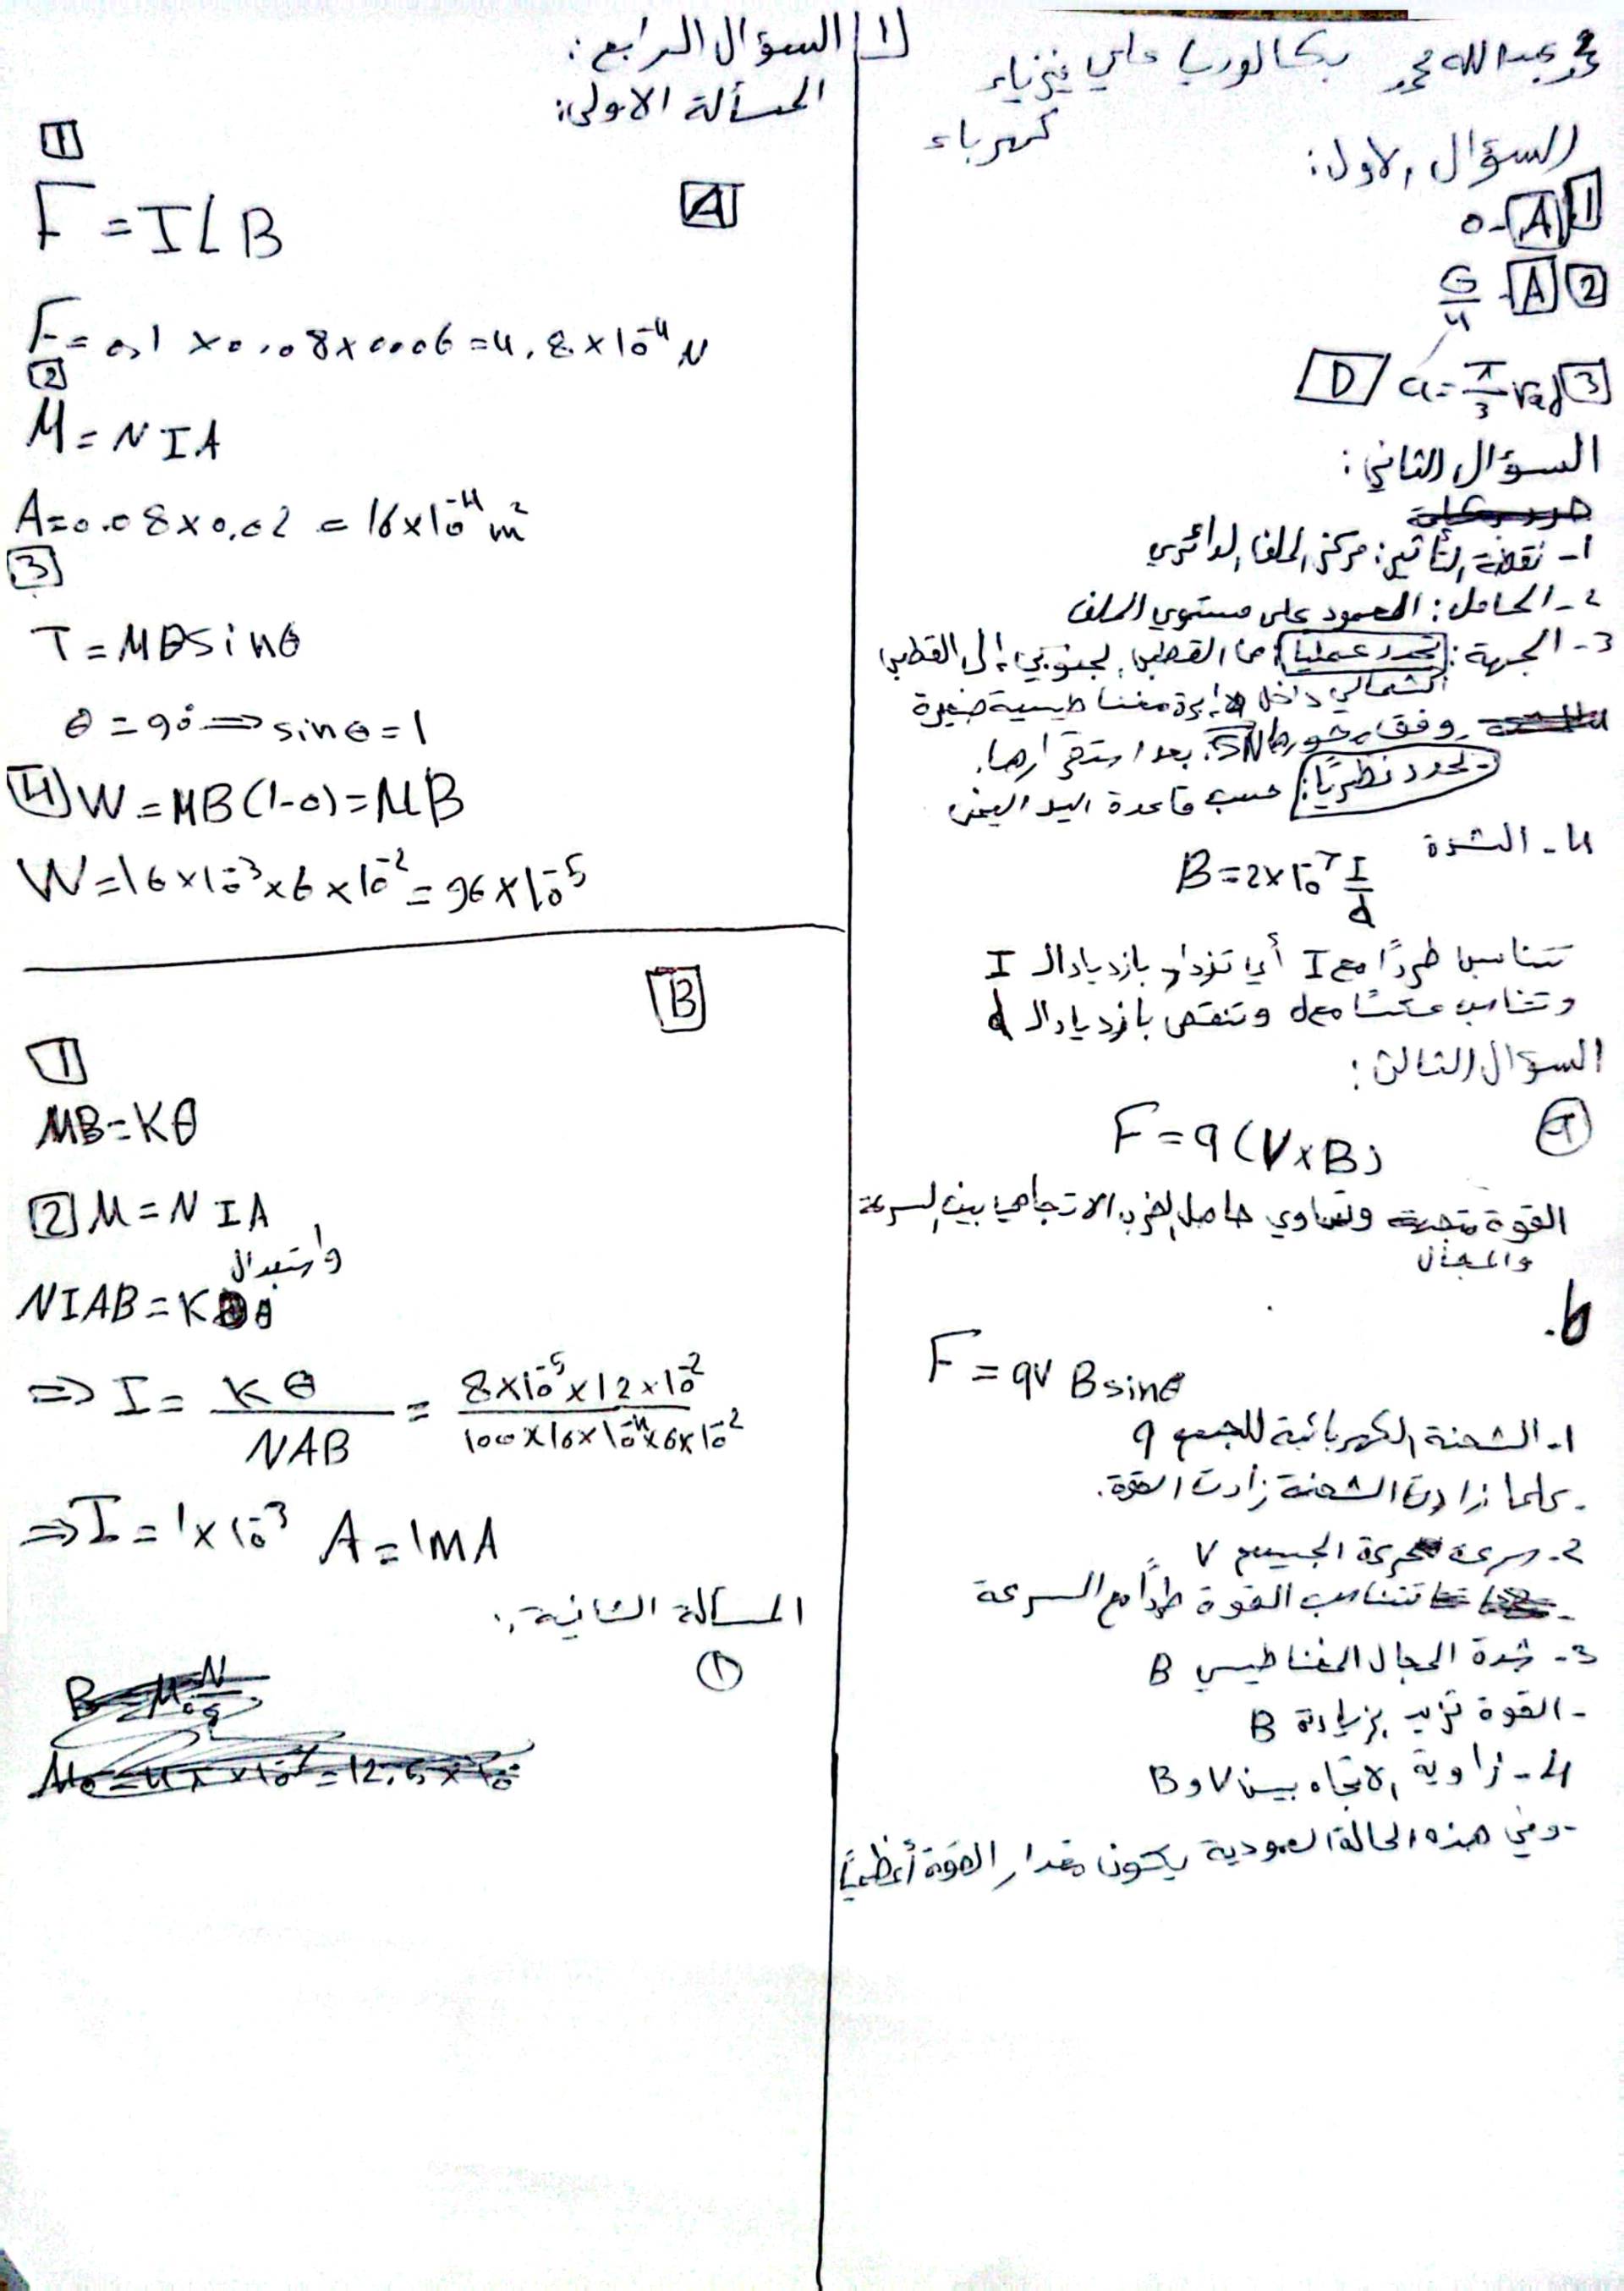 محمد عبد الله محمد بكالوريا علمي فيزياء
كهرباء
السؤال الاول:
1 A - 0
2 A - G/4
3 α = π/3 rad D
السؤال الثاني:
1- نقطة التأثير: مركز الملف الدائري
2- الحامل: العمود على مستوي الملف
3- الجهة: تحدد عمليا: من القطب الجنوبي إلى القطب
الشمالي داخل إبرة مغناطيسية صغيرة
وفق محورها SN بعد استقرارها.
- تحدد نظريًا: حسب قاعدة اليد اليمنى
4- الشدة
B = 2×10⁻⁷ I/d
تتناسب طردًا مع I أي تزداد بازدياد الـ I
وتتناسب عكسًا مع d وتنقص بازدياد الـ d
السؤال الثالث:
F = q (V × B)
القوة متجهة وتساوي حاصل الضرب الاتجاهي بين السرعة
والمجال
b.
F = qV B sinθ
1- الشحنة الكهربائية للجسم q
- كلما زادت الشحنة زادت القوة.
2- سرعة حركة الجسيم V
- تتناسب القوة طردًا مع السرعة
3- شدة المجال المغناطيسي B
- القوة تزيد بزيادة B
4- زاوية الاتجاه بين V و B
- وفي هذه الحالة العمودية يكون مقدار القوة أعظميًا
1 السؤال الرابع:
المسألة الاولى:
A
1
F = I L B
F = 0,1 × 0.08 × 0.06 = 4,8 × 10⁻⁴ N
2
M = N I A
A = 0.08 × 0,02 = 16×10⁻⁴ m²
3
T = MB sinθ
θ = 90° ⇒ sinθ = 1
4 W = MB (1-0) = MB
W = 16×10⁻³ × 6 × 10⁻² = 96 × 10⁻⁵
B
1
MB = Kθ
2 M = N I A
واستبدال
NIAB = Kθ
⇒ I = Kθ / NAB = 8×10⁻⁵ × 12×10⁻² / 100×16×10⁻⁴×6×10⁻²
⇒ I = 1×10⁻³ A = 1MA
المسألة الثانية:
1